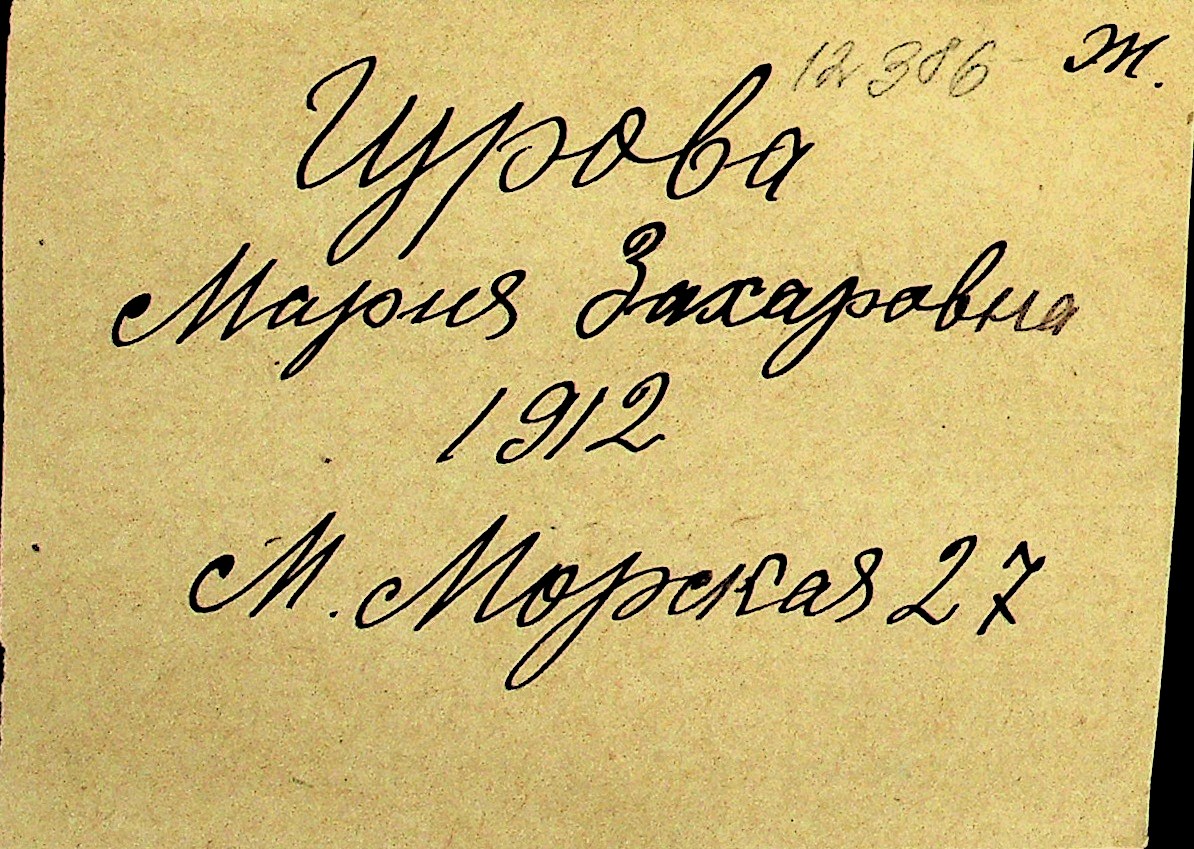 12386 ж.
Гурова
Мария Захаровна
1912
М. Морская 27